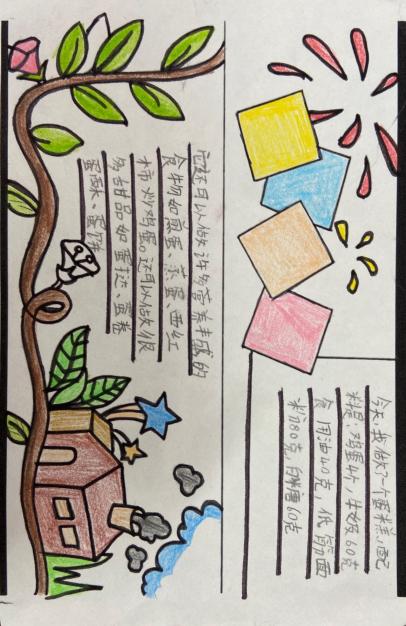 今天,我做了一个蛋糕,配
料是:鸡蛋4个,牛奶60克
食用油40克,低筋面
粉80克,白糖60克
它还可以做许多营养丰盛的
食物如煎蛋、蒸蛋、西红
柿炒鸡蛋。还可以做很
多甜品如蛋挞、蛋卷
蛋酥、蛋饼